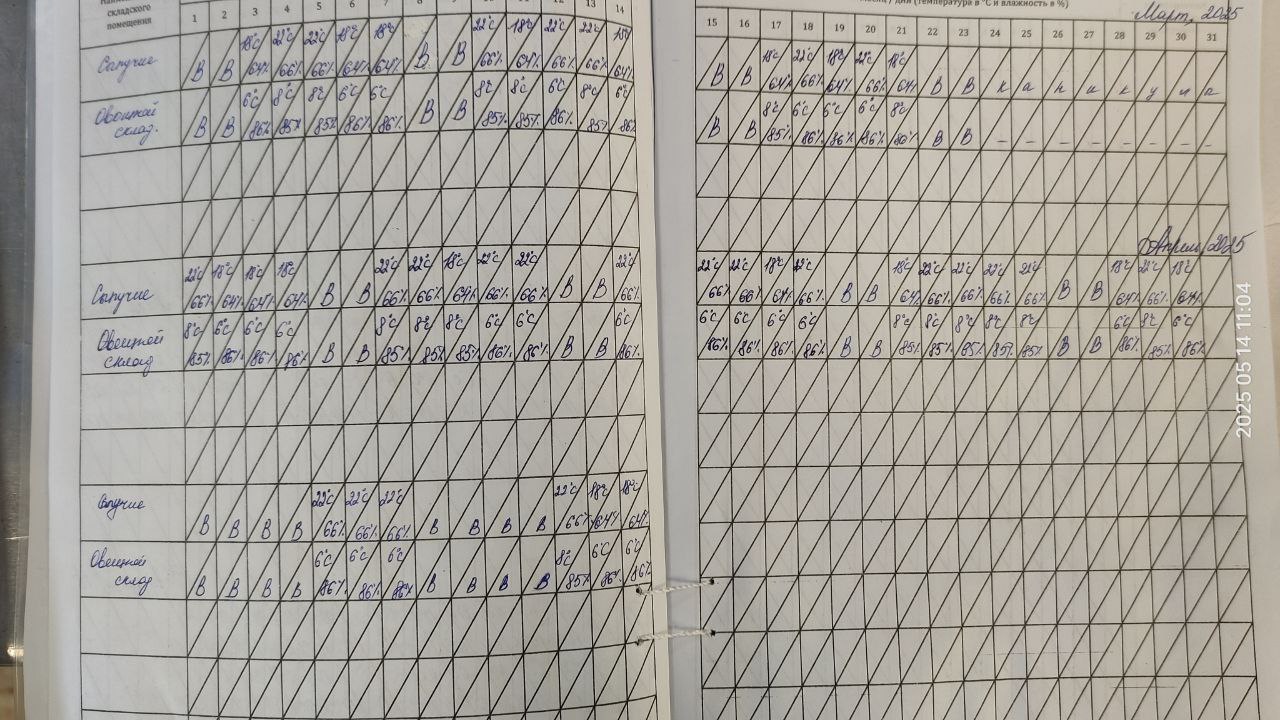 складского
помещения
1 2 3 4 5 6 7 8 9 10 11 12 13 14
месяц / дни (температура в °С и влажность в %)
Март, 2025
15 16 17 18 19 20 21 22 23 24 25 26 27 28 29 30 31
Сыпучие
В В 18°С 64% 22°С 66% 22°С 66% 18°С 64% 18°С 64% В В 22°С 66% 18°С 64% 22°С 66% 22°С 66% 64%
В В 18°С 64% 22°С 66% 18°С 64% 22°С 66% 18°С 64% В В к а н и к у л а
Овощной
склад.
В В 6°С 86% 8°С 85% 8°С 85% 6°С 86% 6°С 86% В В 8°С 85% 8°С 85% 6°С 86% 8°С 85% 6°С 86%
В В 8°С 85% 6°С 86% 6°С 86% 6°С 86% 8°С В В – – – – – – – –
Апрель, 2025
Сыпучие
22°С 66% 18°С 64% 18°С 64% 18°С 64% В В 22°С 66% 22°С 66% 18°С 64% 22°С 66% 22°С 66% В В 22°С 66%
22°С 66% 22°С 66% 18°С 64% 22°С 66% В В 18°С 64% 22°С 66% 22°С 66% 22°С 66% 22°С 66% В В 18°С 64% 22°С 66% 18°С 64%
Овощной
склад
8°С 85% 6°С 85% 6°С 86% 6°С 86% В В 8°С 85% 8°С 85% 8°С 85% 6°С 86% 6°С 86% В В 6°С 86%
6°С 86% 6°С 86% 6°С 86% 6°С 86% В В 8°С 85% 8°С 85% 8°С 85% 8°С 85% 8°С 85% В В 6°С 86% 8°С 85% 6°С 86%
Сыпучие
В В В В 22°С 66% 22°С 66% 22°С 66% В В В В 22°С 66% 18°С 64% 18°С 64%
Овощной
склад
В В В В 6°С 86% 6°С 86% 6°С 86% В В В В 8°С 85% 6°С 86% 6°С 86%
2025 05 14 11:04